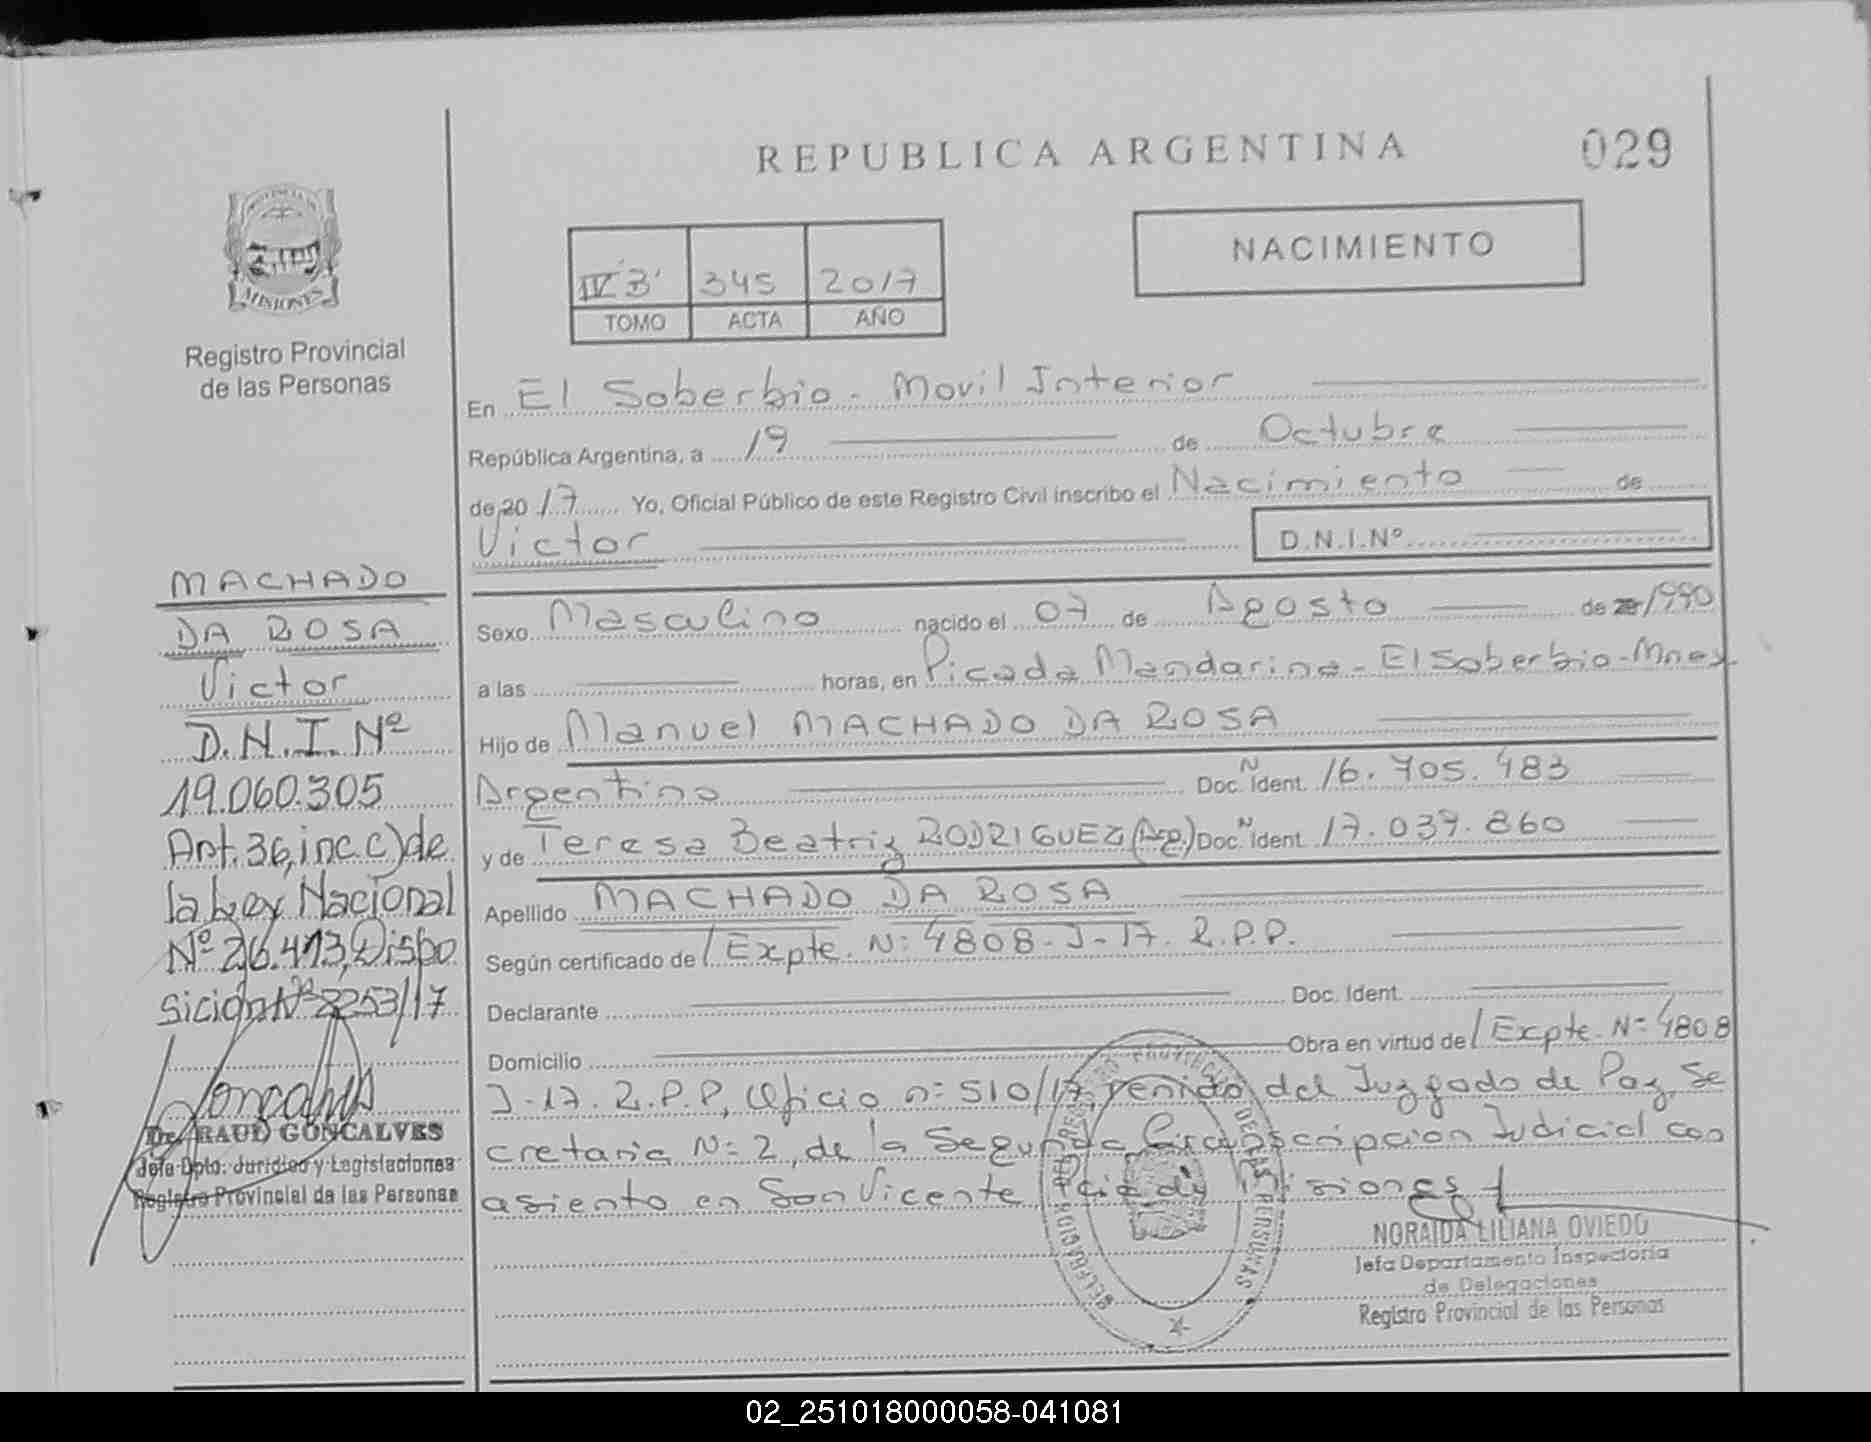 REPUBLICA ARGENTINA
029
NACIMIENTO
IV "B" 345 2017
TOMO ACTA AÑO
MISIONES
Registro Provincial
de las Personas
En El Soberbio - Movil Interior
República Argentina, a 19 de Octubre
de 20 17 Yo, Oficial Público de este Registro Civil inscribo el Nacimiento de
Victor D.N.I.Nº
Sexo Masculino nacido el 07 de Agosto de 1990
a las horas, en Picada Mandarina - El Soberbio - Mnes.
Hijo de Manuel MACHADO DA ROSA
Argentino Doc. N Ident. 16.705.483
y de Teresa Beatriz RODRIGUEZ (Arg.) Doc. N Ident. 17.039.860
Apellido MACHADO DA ROSA
Según certificado de / Expte. N: 4808-J-17. R.P.P.
Declarante Doc. Ident.
Domicilio Obra en virtud de / Expte. N= 4808
J-17. R.P.P, Oficio n= 510/17, venido del Juzgado de Paz, Se
cretaria N= 2, de la Segunda Circunscripcion Judicial con
asiento en San Vicente, Pcia de Misiones
NORAIDA LILIANA OVIEDO
Jefa Departamento Inspectoria
de Delegaciones
Registro Provincial de las Personas
MACHADO
DA ROSA
Victor
D.N.I. Nº
19.060.305
Art. 36, inc. c) de
la Ley Nacional
Nº 26.413, Dispo
sición Nº 2253/17
Dr. RAUL GONCALVES
Jefe Dpto. Jurídico y Legislaciones
Registro Provincial de las Personas
02_251018000058-041081